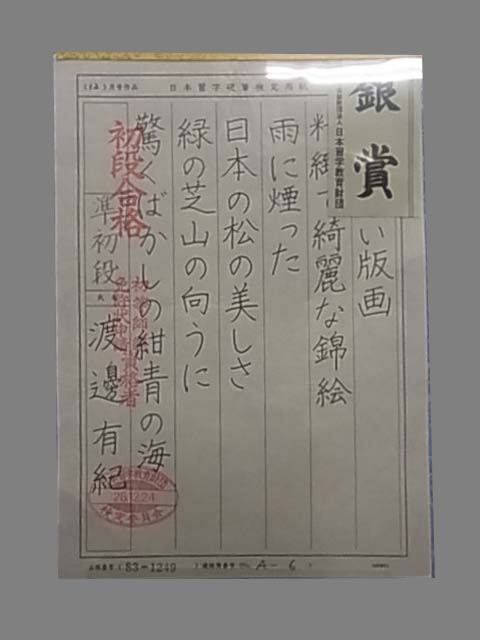 銀賞
日本習字教育財団
(12)月号作品
日本習字硬筆検定用紙
い版画
綺麗な錦絵
雨に煙った
日本の松の美しさ
緑の芝山の向うに
驚くばかしの紺青の海
準初段 渡邊有紀
初段合格
26.12.24
検定委員会
(83-1249)
A-6